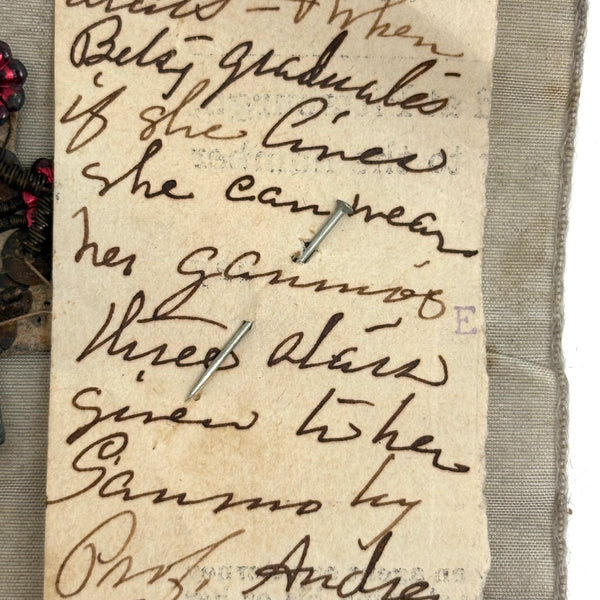 stars – & when
Betsy graduates
if she lives
she can wear
her ganmo's
E
three stars
given to her
Ganmo by
Prof. Andre